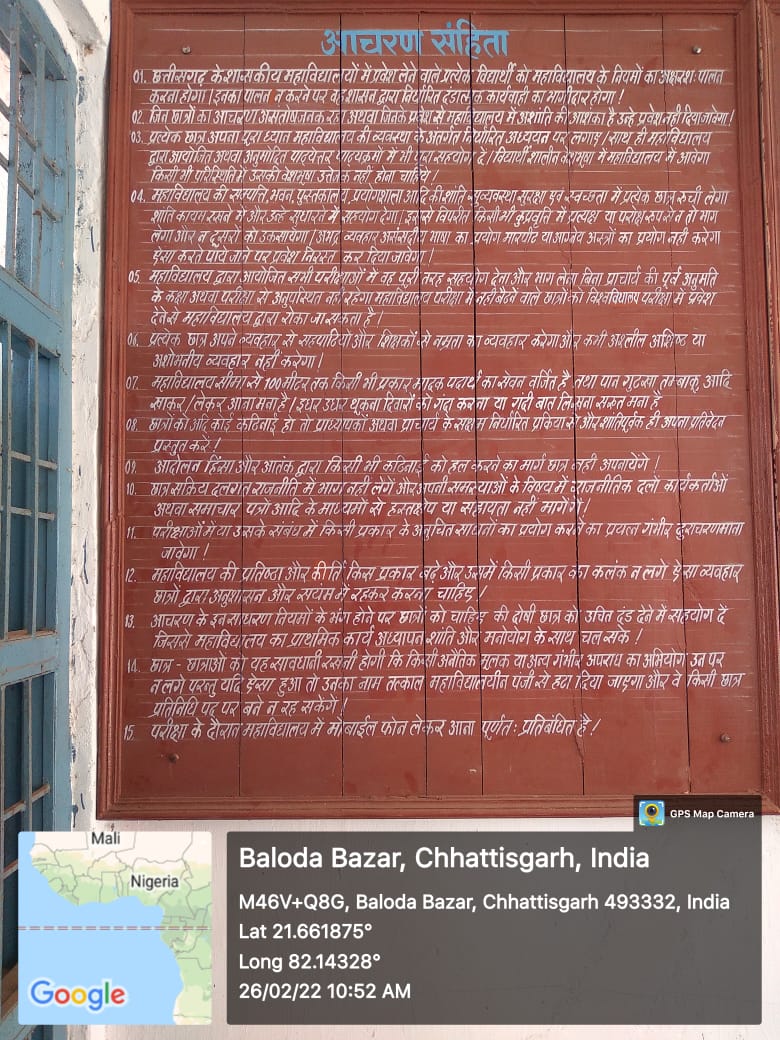 आचरण संहिता
01. छत्तीसगढ़ के शासकीय महाविद्यालयों में प्रवेश लेने वाले प्रत्येक विद्यार्थी को महाविद्यालय के नियमों का अक्षरशः पालन
करना होगा। इनका पालन न करने पर वह शासन द्वारा निर्धारित दंडात्मक कार्यवाही का भागीदार होगा!
02. जिन छात्रों का आचरण असंतोषजनक रहा अथवा जिनके प्रवेश से महाविद्यालय में अशांति की आशंका है उन्हें प्रवेश नहीं दिया जावेगा!
03. प्रत्येक छात्र अपना पूरा ध्यान महाविद्यालय की व्यवस्था के अंतर्गत निर्धारित अध्ययन पर लगाए। साथ ही महाविद्यालय
द्वारा आयोजित अथवा अनुमोदित पाठ्येत्तर पाठ्यक्रमों में भी पूरा सहयोग दें। विद्यार्थी शालीन वेशभूषा में महाविद्यालय में आवेगा
किसी भी परिस्थिति में उसकी वेशभूषा उत्तेजक नहीं होना चाहिये।
04. महाविद्यालय की सम्पत्ति, भवन, पुस्तकालय, प्रयोगशाला आदि की शांति सुव्यवस्था सुरक्षा एवं स्वच्छता में प्रत्येक छात्र रुची लेगा
शांति कायम रखने में और उन्हें सुधारने में सहयोग देगा। इसके विपरीत किसी भी कुप्रवृत्ति में प्रत्यक्ष या परोक्ष रूप से न तो भाग
लेगा और न दूसरों को उकसावेगा। अभद्र व्यवहार असंसदीय भाषा का प्रयोग मारपीट या आग्नेय अस्त्रों का प्रयोग नहीं करेगा
ऐसा करते पाये जाने पर प्रवेश निरस्त कर दिया जावेगा।
05. महाविद्यालय द्वारा आयोजित सभी परीक्षाओं में वह पूरी तरह सहयोग देना और भाग लेना बिना प्राचार्य की पूर्व अनुमति
के कक्षा अथवा परीक्षा से अनुपस्थित नहीं रहेगा महाविद्यालय परीक्षा में नहीं बैठने वाले छात्रों को विश्वविद्यालय परीक्षा में प्रवेश
देने से महाविद्यालय द्वारा रोका जा सकता है।
06. प्रत्येक छात्र अपने व्यवहार से सहपाठियों और शिक्षकों से नम्रता का व्यवहार करेगा और कभी अश्लील अशिष्ट या
अशोभनीय व्यवहार नहीं करेगा।
07. महाविद्यालय सीमा से 100 मीटर तक किसी भी प्रकार मादक पदार्थ का सेवन वर्जित है तथा पान गुटखा तम्बाकू आदि
खाकर / लेकर आना मना है। इधर उधर थूकना दिवारों को गंदा करना या गंदी बात लिखना सख्त मना है
08. छात्रों को यदि कोई कठिनाई हो तो प्राध्यापकों अथवा प्राचार्य के सक्षम निर्धारित प्रक्रिया से और शांतिपूर्वक ही अपना प्रतिवेदन
प्रस्तुत करें!
09. आंदोलन हिंसा और आतंक द्वारा किसी भी कठिनाई को हल करने का मार्ग छात्र नहीं अपनायेंगे!
10. छात्र सक्रिय दलगत राजनीति में भाग नहीं लेंगे और अपनी समस्याओं के विषय में राजनीतिक दलों कार्यकर्ताओं
अथवा समाचार पत्रों आदि के माध्यमों से हस्तक्षेप या सहायता नहीं मांगेंगे!
11. परीक्षाओं में या उसके संबंध में किसी प्रकार के अनुचित साधनों का प्रयोग करने का प्रयत्न गंभीर दुराचरण माना
जावेगा!
12. महाविद्यालय की प्रतिष्ठा और कीर्ति किस प्रकार बढ़े और उसमें किसी प्रकार का कलंक न लगे ऐसा व्यवहार
छात्रों द्वारा अनुशासन और संयम में रहकर करना चाहिए!
13. आचरण के इन साधारण नियमों के भंग होने पर छात्रों को चाहिए की दोषी छात्र को उचित दंड देने में सहयोग दें
जिससे महाविद्यालय का प्राथमिक कार्य अध्यापन शांति और मनोयोग के साथ चल सके!
14. छात्र - छात्राओं को यह सावधानी रखनी होगी कि किसी अनैतिक मूलक या अन्य गंभीर अपराध का अभियोग उन पर
न लगे परन्तु यदि ऐसा हुआ तो उनका नाम तत्काल महाविद्यालयीन पंजी से हटा दिया जाएगा और वे किसी छात्र
प्रतिनिधि पद पर बने न रह सकेंगे!
15. परीक्षा के दौरान महाविद्यालय में मोबाईल फोन लेकर आना पूर्णतः प्रतिबंधित है!
GPS Map Camera
Mali
Nigeria
Google
Baloda Bazar, Chhattisgarh, India
M46V+Q8G, Baloda Bazar, Chhattisgarh 493332, India
Lat 21.661875°
Long 82.14328°
26/02/22 10:52 AM